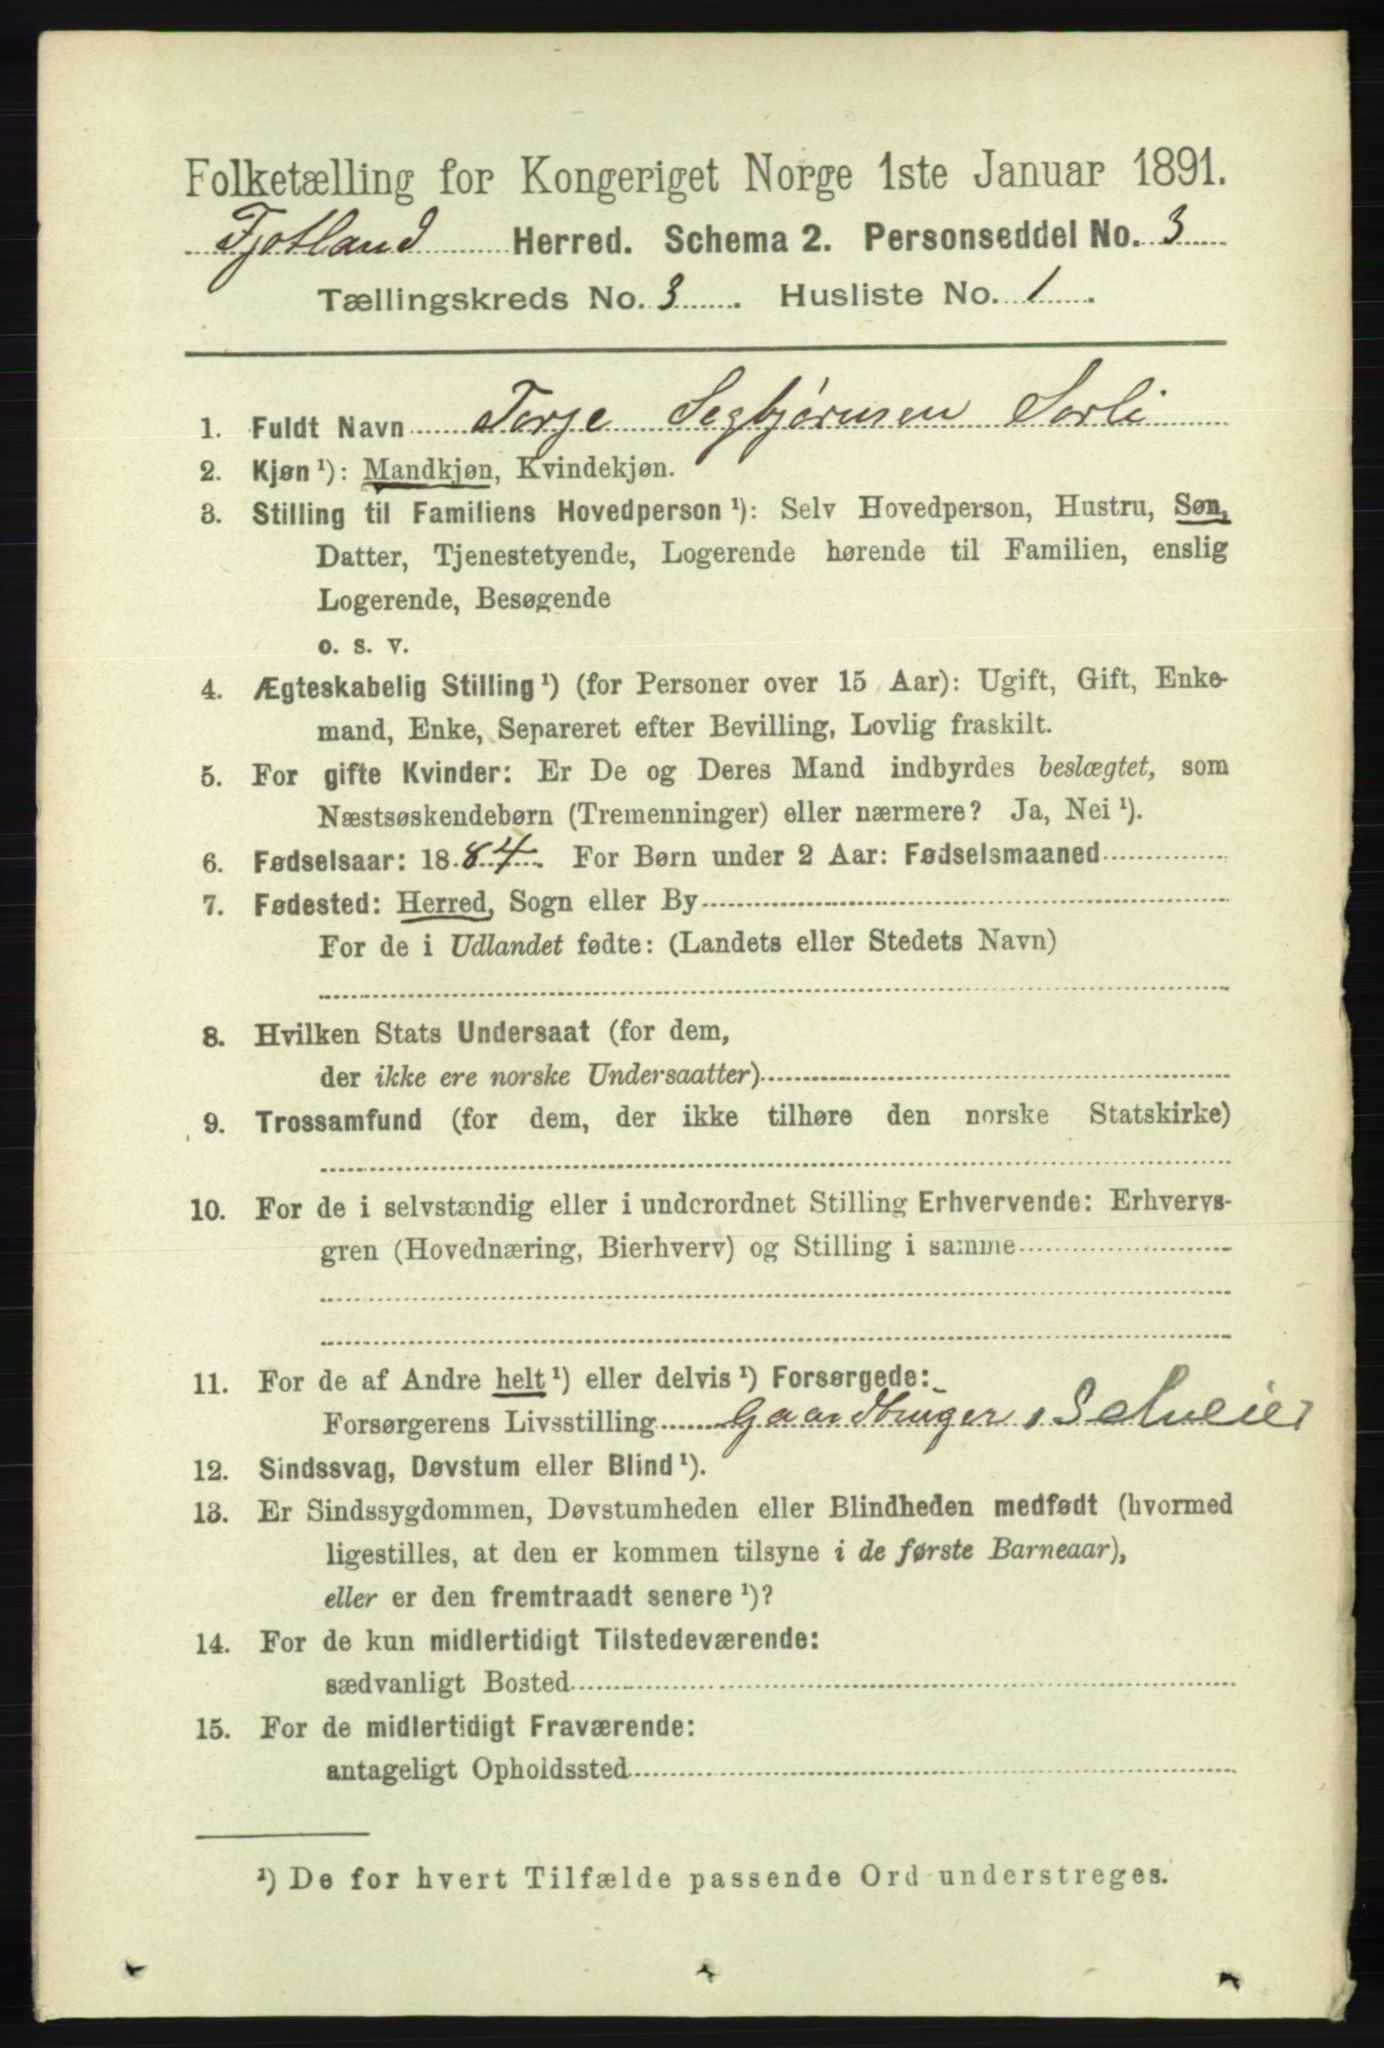 Folketælling for Kongeriget Norge 1ste Januar 1891.
Fjotland Herred. Schema 2. Personseddel No. 3
Tællingskreds No. 3. Husliste No. 1.
1. Fuldt Navn Torje Segbjørnsen Sorli
2. Kjøn ¹): Mandkjøn, Kvindekjøn.
3. Stilling til Familiens Hovedperson ¹): Selv Hovedperson, Hustru, Søn,
Datter, Tjenestetyende, Logerende hørende til Familien, enslig
Logerende, Besøgende
o. s. v.
4. Ægteskabelig Stilling ¹) (for Personer over 15 Aar): Ugift, Gift, Enke-
mand, Enke, Separeret efter Bevilling, Lovlig fraskilt.
5. For gifte Kvinder: Er De og Deres Mand indbyrdes beslægtet, som
Næstsøskendebørn (Tremenninger) eller nærmere? Ja, Nei ¹).
6. Fødselsaar: 1884. For Børn under 2 Aar: Fødselsmaaned
7. Fødested: Herred, Sogn eller By
For de i Udlandet fødte: (Landets eller Stedets Navn)
8. Hvilken Stats Undersaat (for dem,
der ikke ere norske Undersaatter)
9. Trossamfund (for dem, der ikke tilhøre den norske Statskirke)
10. For de i selvstændig eller i underordnet Stilling Erhvervende: Erhvervs-
gren (Hovednæring, Bierhverv) og Stilling i samme
11. For de af Andre helt ¹) eller delvis ¹) Forsørgede:
Forsørgerens Livsstilling Gaardbruger, Selveier
12. Sindssvag, Døvstum eller Blind ¹).
13. Er Sindssygdommen, Døvstumheden eller Blindheden medfødt (hvormed
ligestilles, at den er kommen tilsyne i de første Barneaar),
eller er den fremtraadt senere ¹)?
14. For de kun midlertidigt Tilstedeværende:
sædvanligt Bosted
15. For de midlertidigt Fraværende:
antageligt Opholdssted
¹) De for hvert Tilfælde passende Ord understreges.